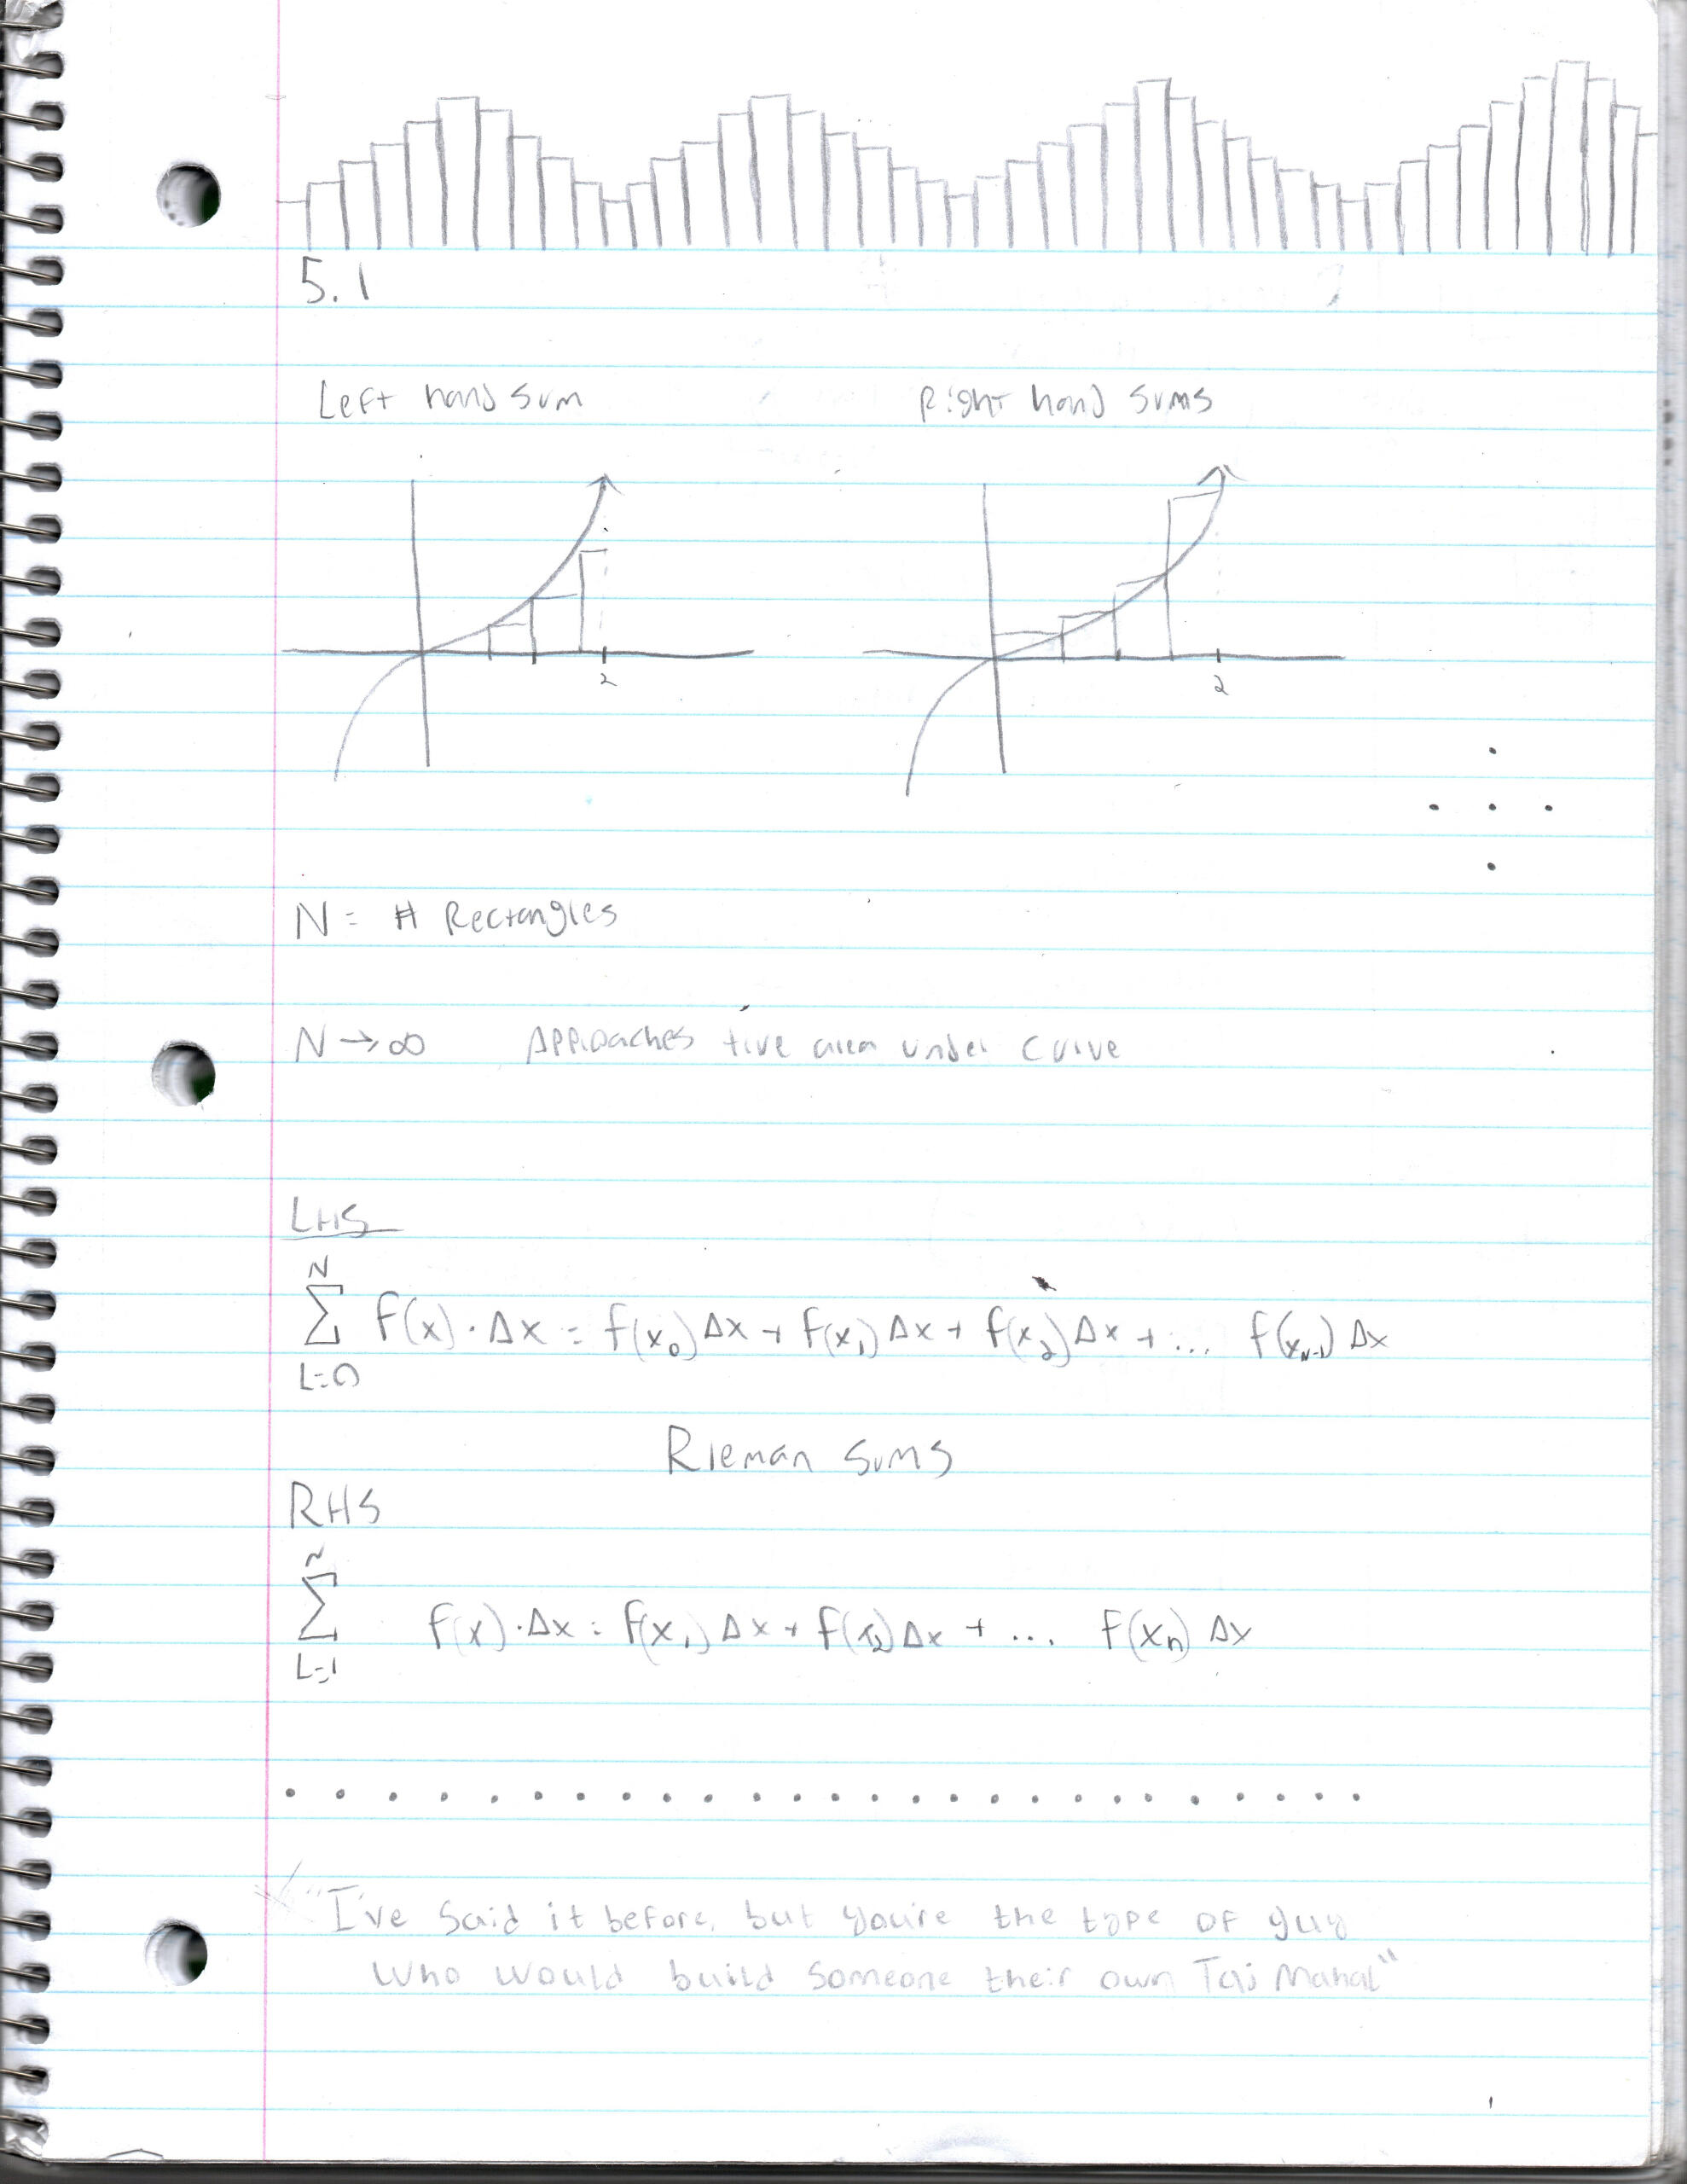 5.1
Left hand sum Right hand sums
2 2
N = # Rectangles
N → ∞ Approaches true area under curve
LHS
N
∑ f(x) · Δx = f(x₀) Δx + f(x₁) Δx + f(x₂) Δx + ... f(xₙ₋₁) Δx
L=0
Rieman sums
RHS
N
∑ f(x) · Δx = f(x₁) Δx + f(x₂) Δx + ... f(xₙ) Δx
L=1
"I've said it before, but you're the type of guy
who would build someone their own Taj Mahal"